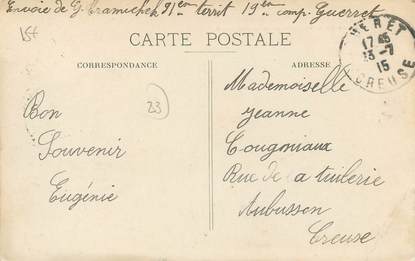 Envoie de G. Cramichel 91em territ 19em comp. Guerret
15f
CARTE POSTALE
CORRESPONDANCE
ADRESSE
23
Bon
Souvenir
Eugénie
Mademoiselle
Jeanne
Cougoniaux
Rue de la tuilerie
Aubusson
Creuse
UERET
17 45
13-7
15
CREUSE